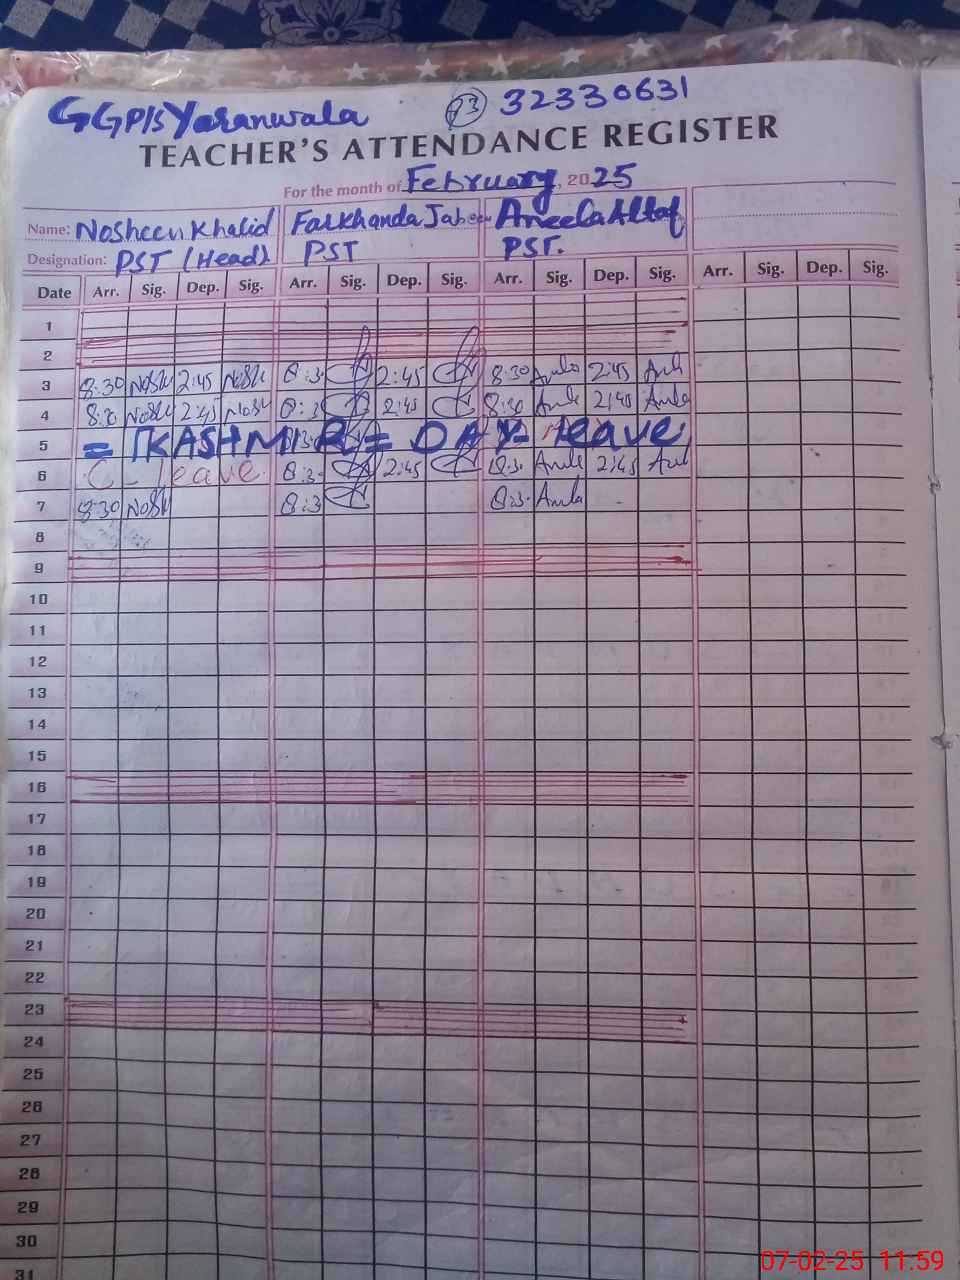 GGP/S Yaranwala 93 32330631
TEACHER'S ATTENDANCE REGISTER
For the month of February, 2025
Name: Nosheen Khalid Farkhanda Jabeen Aneela Altaf
Designation: PST (Head) PST PST.
Date Arr. Sig. Dep. Sig. Arr. Sig. Dep. Sig. Arr. Sig. Dep. Sig. Arr. Sig. Dep. Sig.
1
2
3 8:30 2:45 8:3 2:45 8:30 2:45
4 8:30 2:45 8:3 2:45 8:30 2:45
5 = KASHMIR = DAY- leave
6 C- leave 8:3 2:45 8:3 2:45
7 8:30 8:3 8:3
8
9
10
11
12
13
14
15
16
17
18
19
20
21
22
23
24
25
26
27
28
29
30
31
07-02-25 11:59